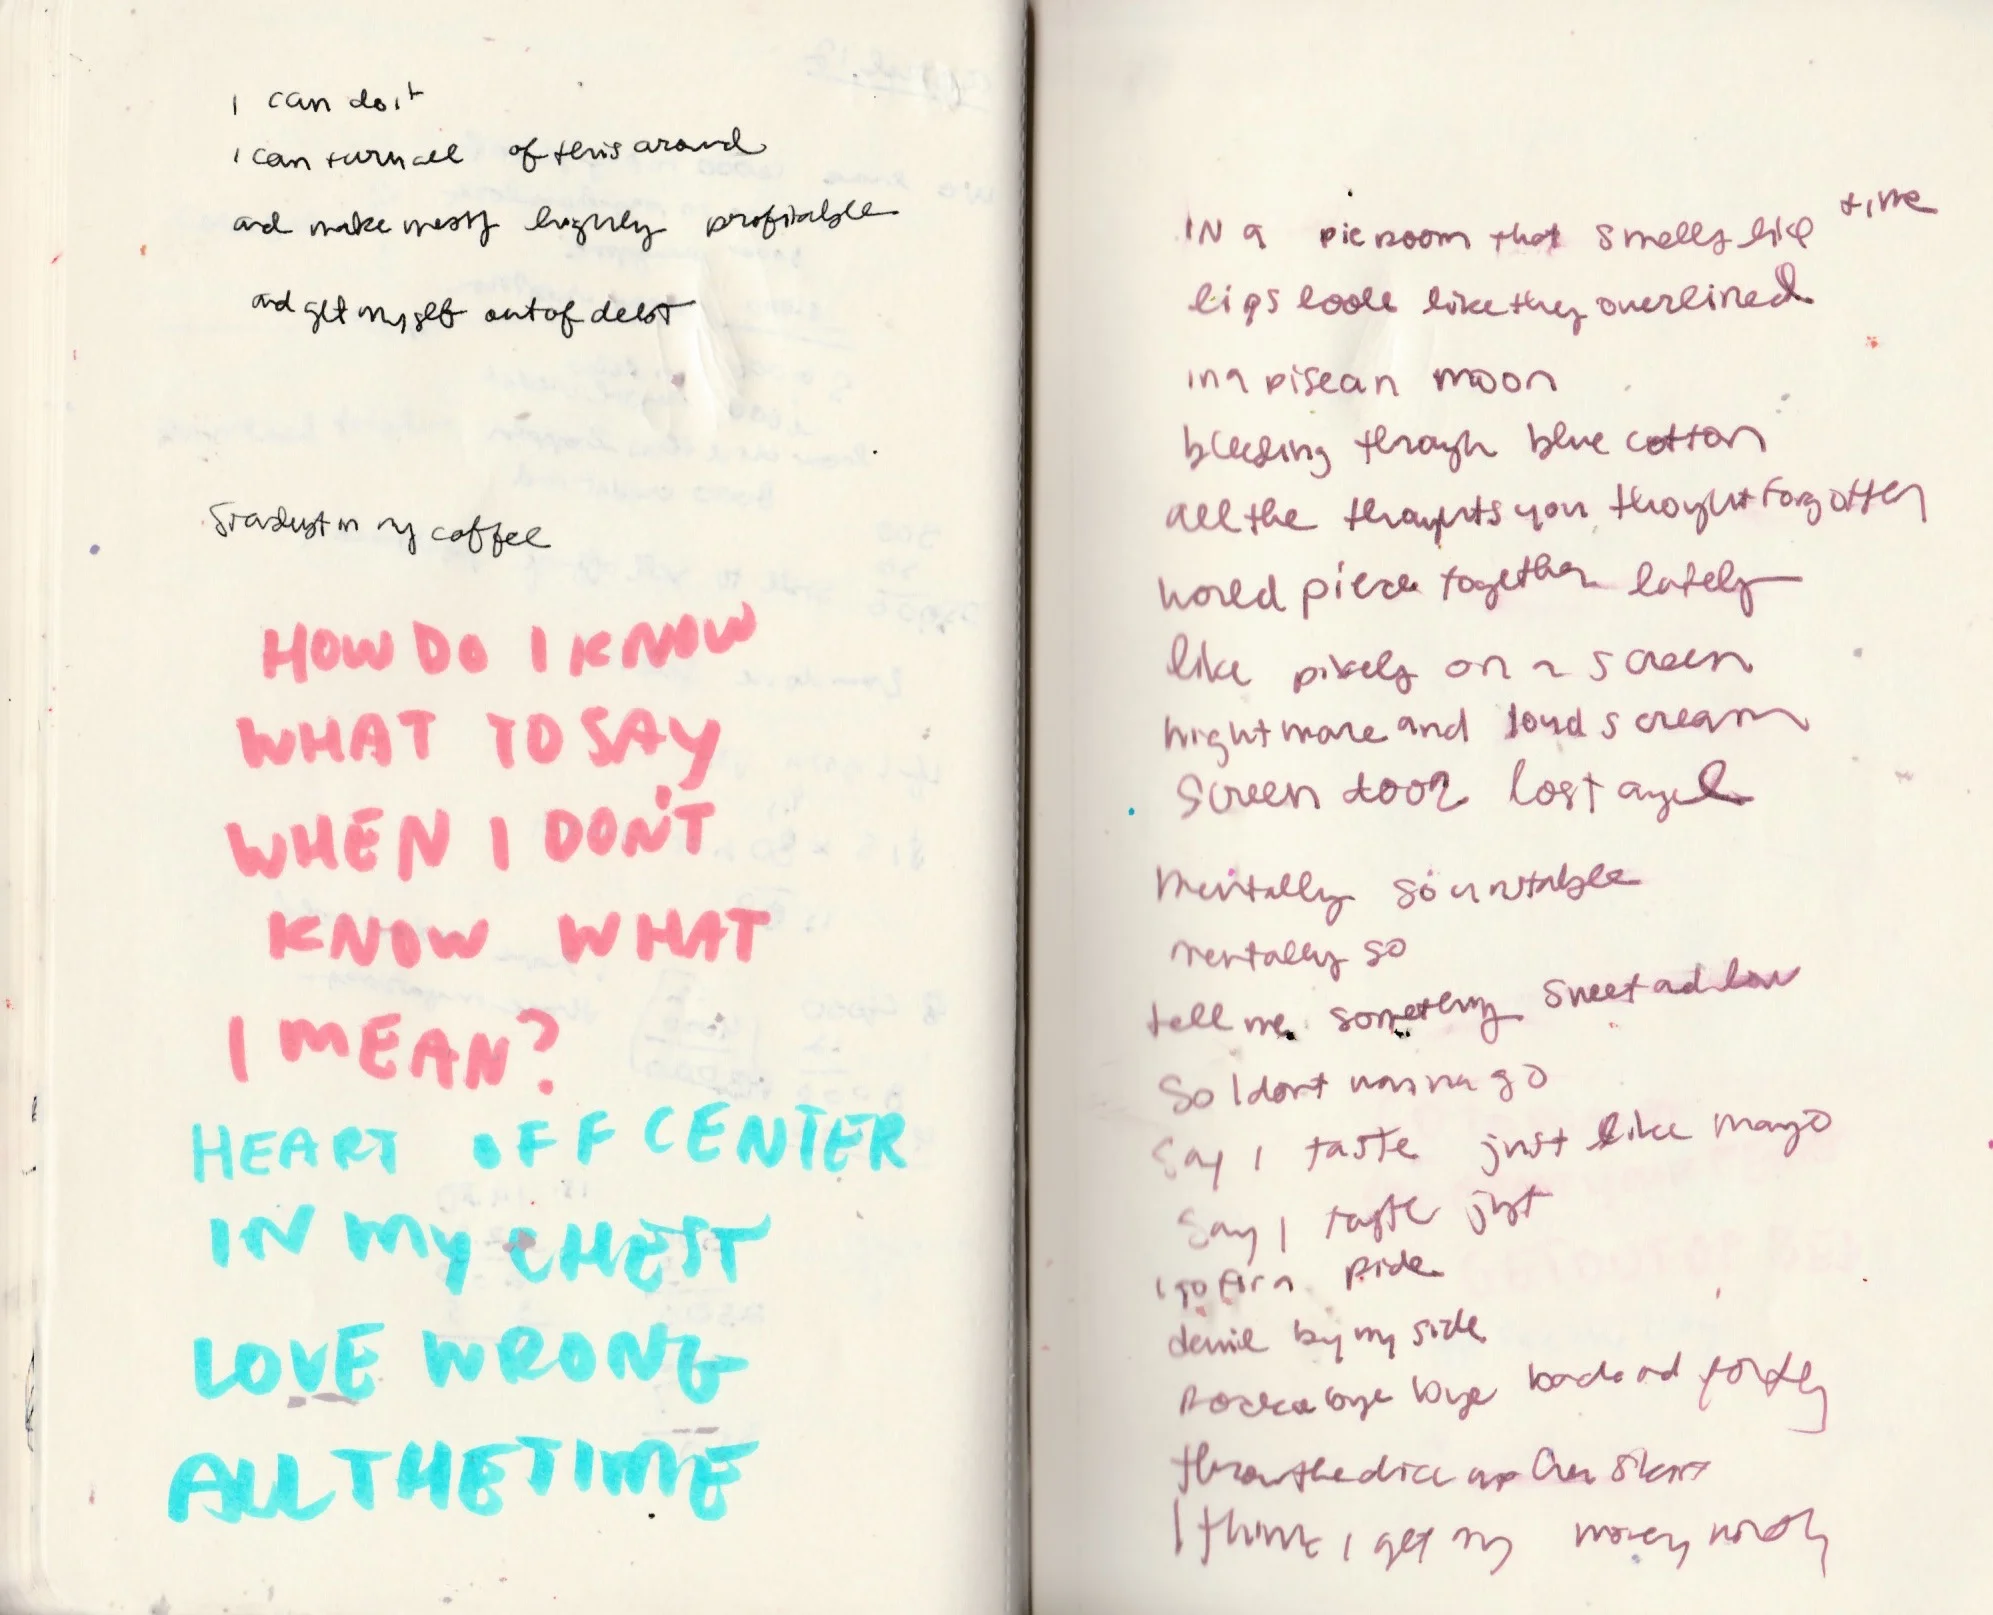 I can do it
I can turn all of this around
and make messy highly profitable
and get myself out of debt
Stardust in my coffee
HOW DO I KNOW
WHAT TO SAY
WHEN I DON'T
KNOW WHAT
I MEAN?
HEART OFF CENTER
IN MY CHEST
LOVE WRONG
ALL THE TIME
IN a room that smells like time
lips look like they overlined
in a pisean moon
bleeding through blue cotton
all the thoughts you thought forgotten
would piece together lately
like pixels on a screen
nightmare and loud scream
screen door lost angel
mentally so unstable
mentally so
tell me something sweet and low
So I dont wanna go
Say I taste just like mayo
Say I taste just
I go for a ride
by my side
rocka bye bye back and
throw the dice up her skirt
I think I get my money worth